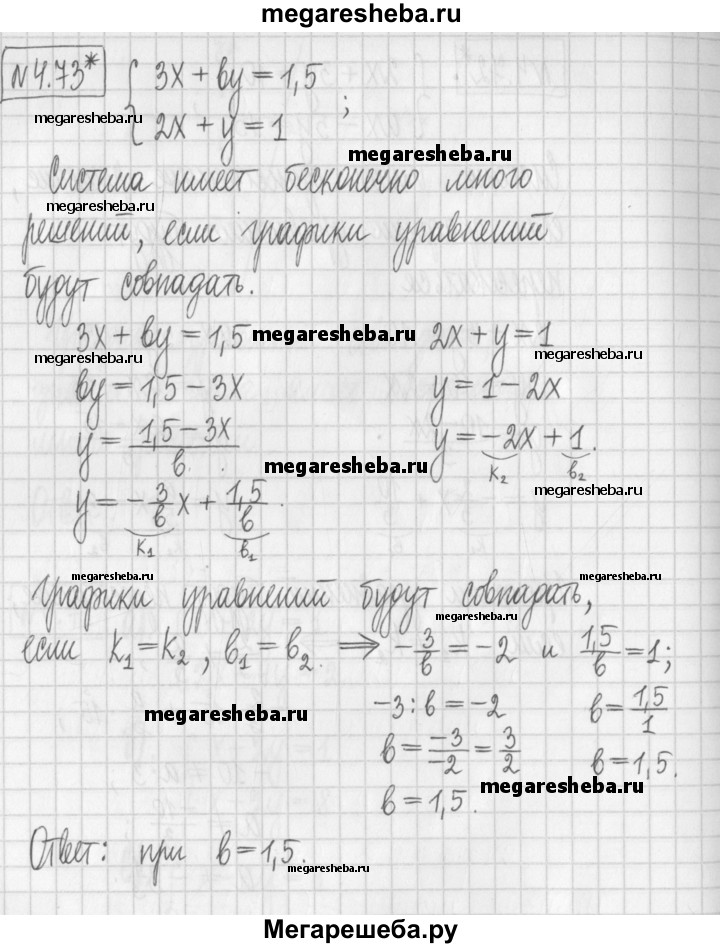 megaresheba.ru
№4.73* { 3x + by = 1,5
2x + y = 1 ;
megaresheba.ru
megaresheba.ru
Система имеет бесконечно много
megaresheba.ru
решений, если графики уравнений
будут совпадать.
3x + by = 1,5 megaresheba.ru 2x + y = 1
megaresheba.ru megaresheba.ru
by = 1,5 − 3x y = 1 − 2x
y = (1,5 − 3x)/b . y = −2x + 1.
megaresheba.ru k₂ b₂
megaresheba.ru
y = −3/b x + 1,5/b .
k₁ b₁
megaresheba.ru megaresheba.ru
Графики уравнений будут совпадать,
megaresheba.ru
если k₁ = k₂, b₁ = b₂. ⟹ −3/b = −2 и 1,5/b = 1;
−3 : b = −2 b = 1,5/1
megaresheba.ru
b = −3/−2 = 3/2 b = 1,5.
megaresheba.ru
b = 1,5.
Ответ: при b = 1,5.
megaresheba.ru
Мегарешеба.ру